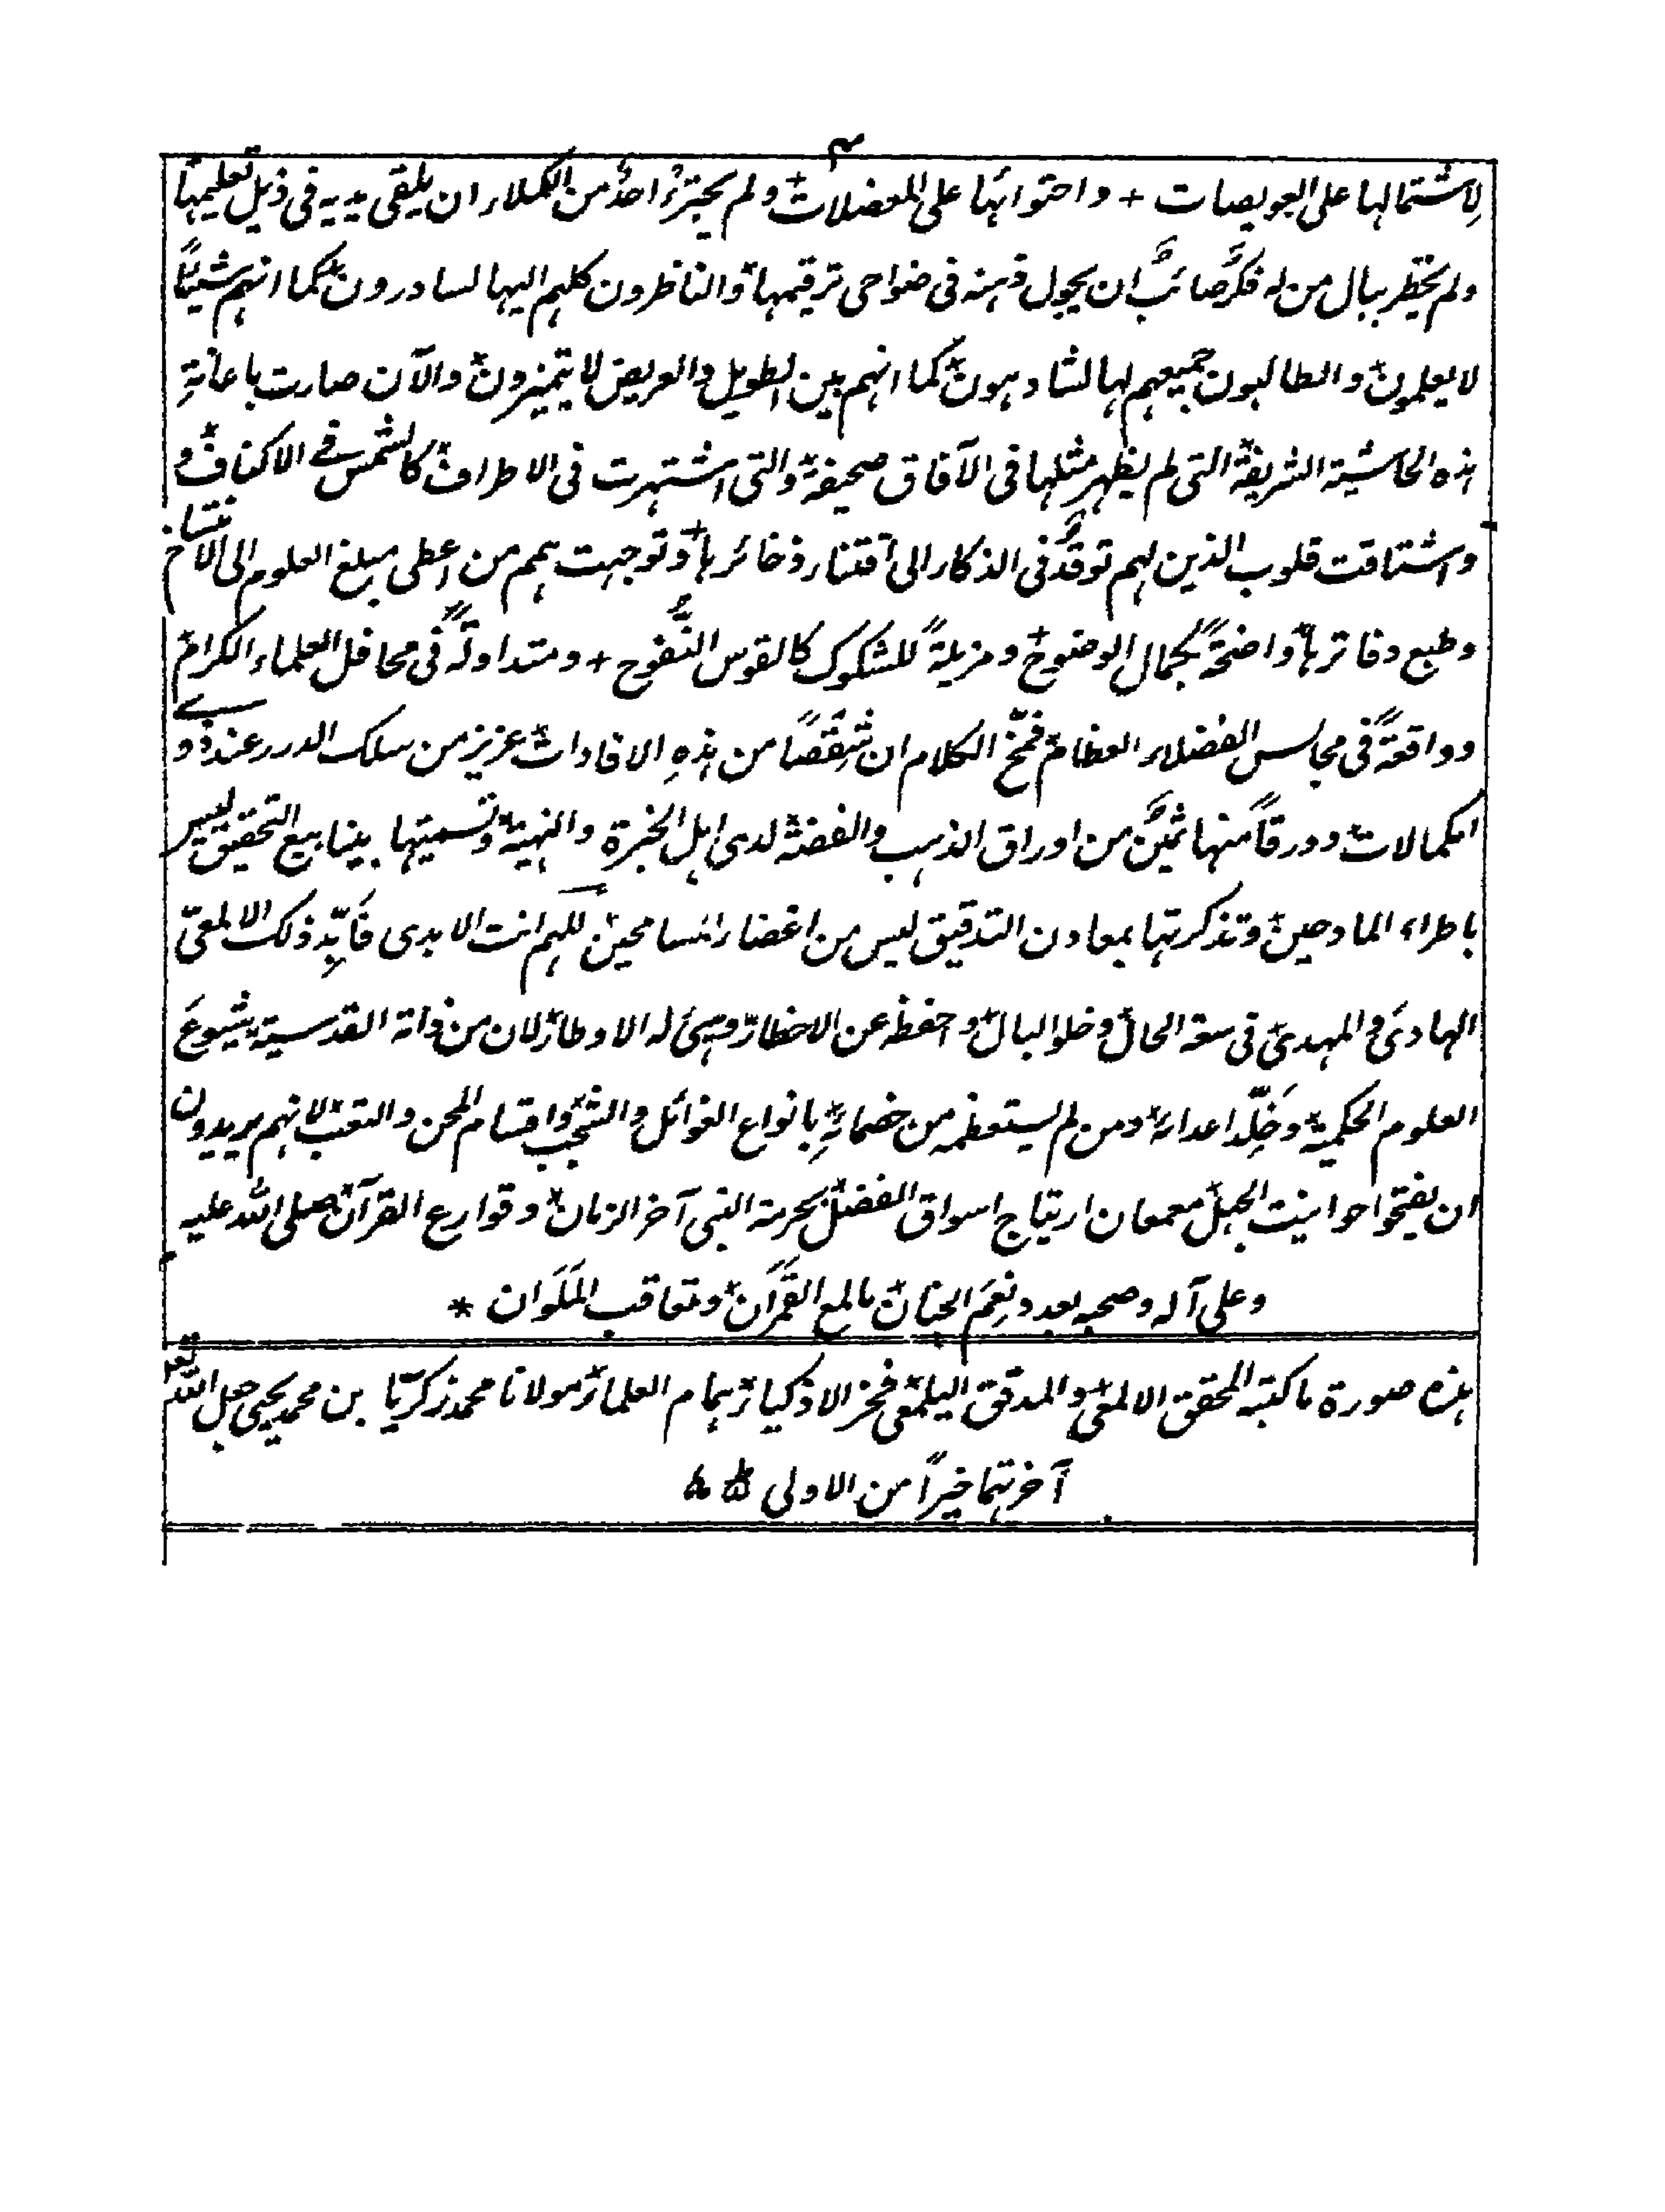 ۳
لِاشتمالها على العويصات + واحتوائها على المعضلات + ولم يجترءُ احدٌ من الكملاء ان يلقى يديه فى ذيل تعليمها
ولم يخطر ببال من له فكرٌ صائبٌ ان يجول ذهنه فى ضواحى ترقيمها والناظرون كلهم اليها لسادرون كما انهم شيئًا
لا يعلمون والطالبون جميعهم لها لشادهون كما انهم بين الطويل والعريض لا يتميزون والآن صارت باعانةِ
هذه الحاشية الشريفة التى لم يظهر مثلها فى الآفاق صحيفة والتى اشتهرت فى الاطراف كالشمس فے الاكناف و
واشتاقت قلوب الذين لهم توقّدٌ فى الذكاء الى اقتناء ذخائرها + وتوجهت همم من اعطى مبلغ العلوم الى الانتساخ
وطبع دفاترها واضحةً بجمال الوضوح + ومزيلةً للشكوك كالقوس النَّفوح + ومتداولةً فى محافل العلماء الكرام
وواقعةً فى مجالس الفضلاء العظام فمخّ الكلام ان شِقْصًا من هذهِ الافادات عزيز من سلك الدرر عند ذوے
الكمالات وورقاً منها ثمينٌ من اوراق الذهب والفضة لدى اهل الخبرة والنهية وتسميتها بينابيع التحقيق ليس
باطراء المادحين وتذكرتها بمعادن التدقيق ليس من اغضاء المسامحين اللهم انت الابدى فَايِّد ذلك الالمعىّ
الهادىَ والمهدىَ فى سعة الحال وخلو البال واحفظه عن الاخطار وهيئ له الاوطار لان من ذاته القدسية شيوعَ
العلوم الحكمية وخَلِّد اعدائه ومن لم يستعظمه من خصمائهِ بانواع الغوائل والشجب واقسام المحن والتعب لانهم يريدون
ان يفتحوا حوانيت الجهل معمعان ارتياج اسواق الفضل بحرمة النبى آخر الزمان وقوارع القرآن صلى الله عليه
وعلى آله وصحبه بعدد نِعَم الجنان مالمع القَمَران وتعاقب المَلَوان *
هذه صورة ما كتبه المحقق الالمعى والمدقق اليلمعى فخر الاذكياء همام العلماء مولانا محمد زكريّا بن محمد يحيى جعل الله تعا
آخرتهما خيراً من الاولى